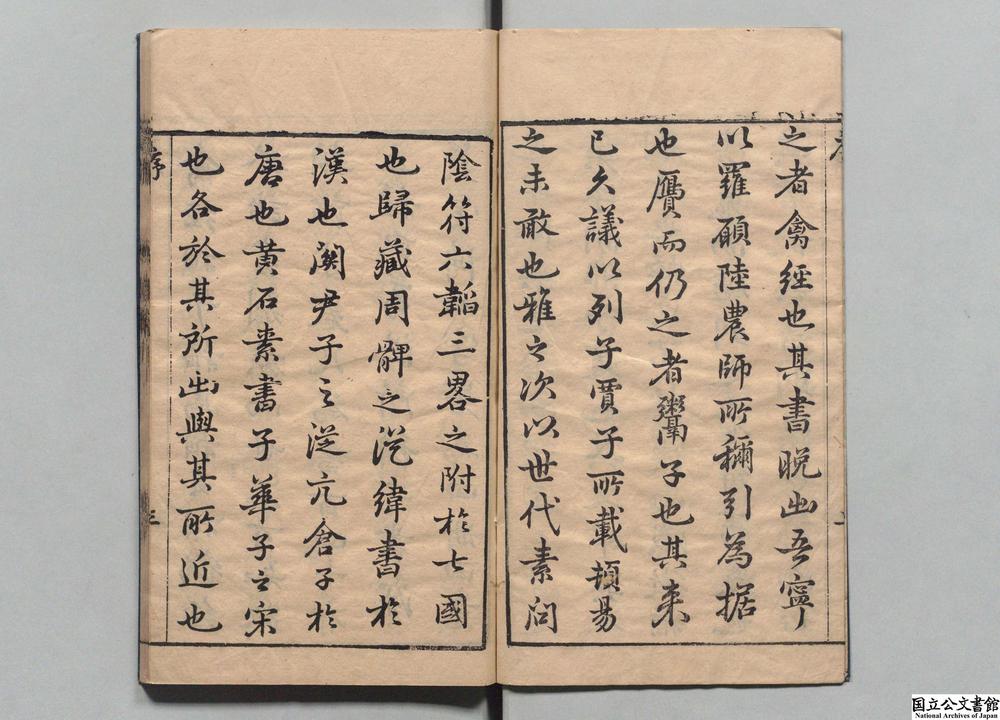 之者禽經也其書晚出吾寧
以羅願陸農師所稱引為据
也贗而仍之者鬻子也其來
已久議以列子賈子所載頓易
之未敢也雅之次以世代素问
陰符六韜三畧之附於七國
也歸藏周髀之從緯書於
漢也関尹子之從亢倉子於
唐也黄石素書子華子之宋
也各於其所出與其所近也
序
三
国立公文書館
National Archives of Japan